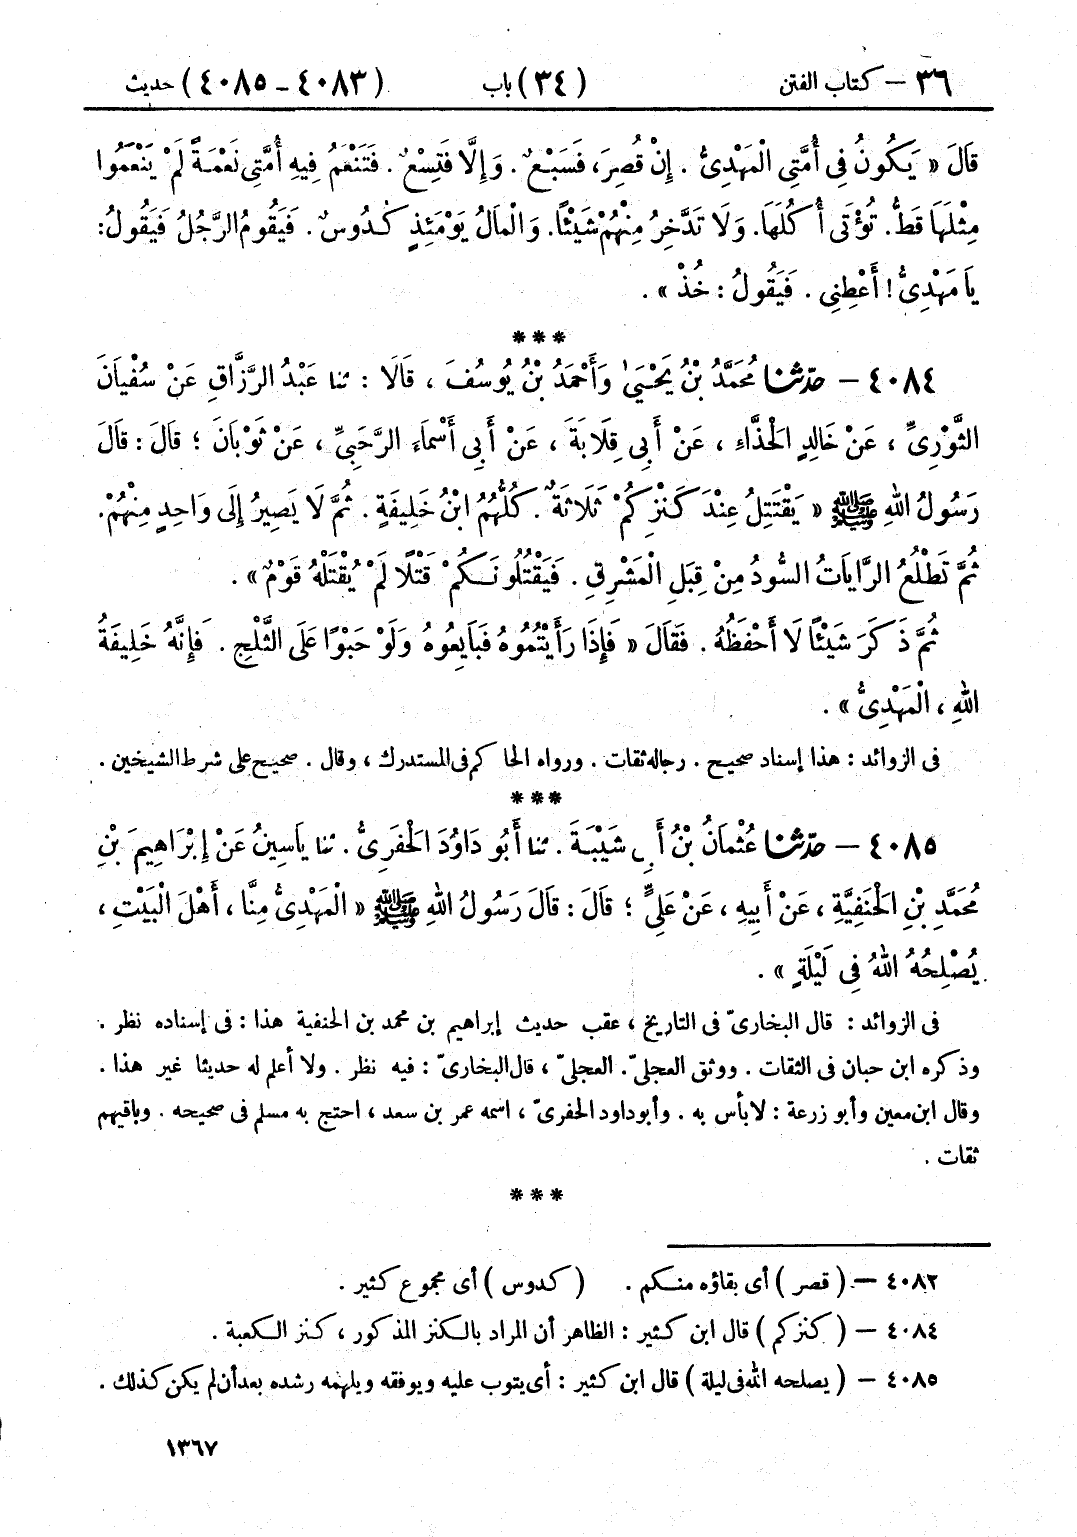 ٣٦ – كتاب الفتن (٣٤) باب (٤٠٨٣ – ٤٠٨٥) حديث
قَالَ « يَكُونُ فِى أُمَّتِى الْمَهْدِىُّ . إِنْ قُصِرَ، فَسَبْعٌ . وَإِلَّا فَتِسْعٌ . فَتَنْعَمُ فِيهِ أُمَّتِى نَعْمَةً لَمْ يَنْعَمُوا
مِثْلَهَا قَطُّ. تُؤْتَى أُكُلَهَا. وَلَا تَدَّخِرُ مِنْهُمْ شَيْئًا. وَالْمَالُ يَوْمَئِذٍ كُدُوسٌ . فَيَقُومُ الرَّجُلُ فَيَقُولُ:
يَا مَهْدِىُّ! أَعْطِنِى . فَيَقُولُ : خُذْ » .
***
٤٠٨٤ – حدّثنا مُحَمَّدُ بْنُ يَحْيَىٰ وَأَحْمَدُ بْنُ يُوسُفَ ، قَالَا : ثنا عَبْدُ الرَّزَّاقِ عَنْ سُفْيَانَ
الثَّوْرِىِّ ، عَنْ خَالِدٍ الْحَذَّاءِ ، عَنْ أَبِى قِلَابَةَ ، عَنْ أَبِى أَسْمَاءَ الرَّحَبِىِّ ، عَنْ ثَوْبَانَ ؛ قَالَ : قَالَ
رَسُولُ اللهِ ﷺ « يَقْتَتِلُ عِنْدَ كَنْزِكُمْ ثَلَاثَةٌ . كُلُّهُمُ ابْنُ خَلِيفَةٍ . ثُمَّ لَا يَصِيرُ إِلَى وَاحِدٍ مِنْهُمْ.
ثُمَّ تَطْلُعُ الرَّايَاتُ السُّودُ مِنْ قِبَلِ الْمَشْرِقِ . فَيَقْتُلُونَكُمْ قَتْلًا لَمْ يُقْتَلْهُ قَوْمٌ » .
ثُمَّ ذَكَرَ شَيْئًا لَا أَحْفَظُهُ . فَقَالَ « فَإِذَا رَأَيْتُمُوهُ فَبَايِعُوهُ وَلَوْ حَبْوًا عَلَى الثَّلْجِ . فَإِنَّهُ خَلِيفَةُ
اللهِ ، الْمَهْدِىُّ » .
فى الزوائد : هذا إسناد صحيح . رجاله ثقات . ورواه الحاكم فى المستدرك ، وقال . صحيح على شرط الشيخين .
***
٤٠٨٥ – حدّثنا عُثْمَانُ بْنُ أَبِى شَيْبَةَ . ثنا أَبُو دَاوُدَ الْحَفَرِىُّ . ثنا يَاسِينُ عَنْ إِبْرَاهِيمَ بْنِ
مُحَمَّدِ بْنِ الْحَنَفِيَّةِ ، عَنْ أَبِيهِ ، عَنْ عَلِىٍّ ؛ قَالَ : قَالَ رَسُولُ اللهِ ﷺ « الْمَهْدِىُّ مِنَّا ، أَهْلَ الْبَيْتِ ،
يُصْلِحُهُ اللهُ فِى لَيْلَةٍ » .
فى الزوائد : قال البخارىّ فى التاريخ ، عقب حديث إبراهيم بن محمد بن الحنفية هذا : فى إسناده نظر .
وذكره ابن حبان فى الثقات . ووثق العجلىّ . العجلىّ ، قال البخارىّ : فيه نظر . ولا أعلم له حديثا غير هذا .
وقال ابن معين وأبو زرعة : لا بأس به . وأبو داود الحفرىّ ، اسمه عمر بن سعد ، احتج به مسلم فى صحيحه . وباقيهم
ثقات .
***
٤٠٨٢ – ( قصر ) أى بقاؤه منكم . ( كدوس ) أى مجموع كثير .
٤٠٨٤ – ( كنزكم ) قال ابن كثير : الظاهر أن المراد بالكنز المذكور ، كنز الكعبة .
٤٠٨٥ – ( يصلحه الله فى ليلة ) قال ابن كثير : أى يتوب عليه ويوفقه ويلهمه رشده بعد أن لم يكن كذلك .
١٣٦٧